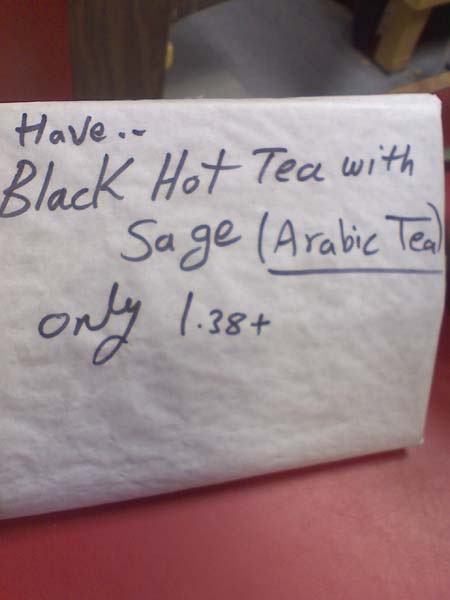 Have..
Black Hot Tea with
Sage (Arabic Tea)
only 1.38+